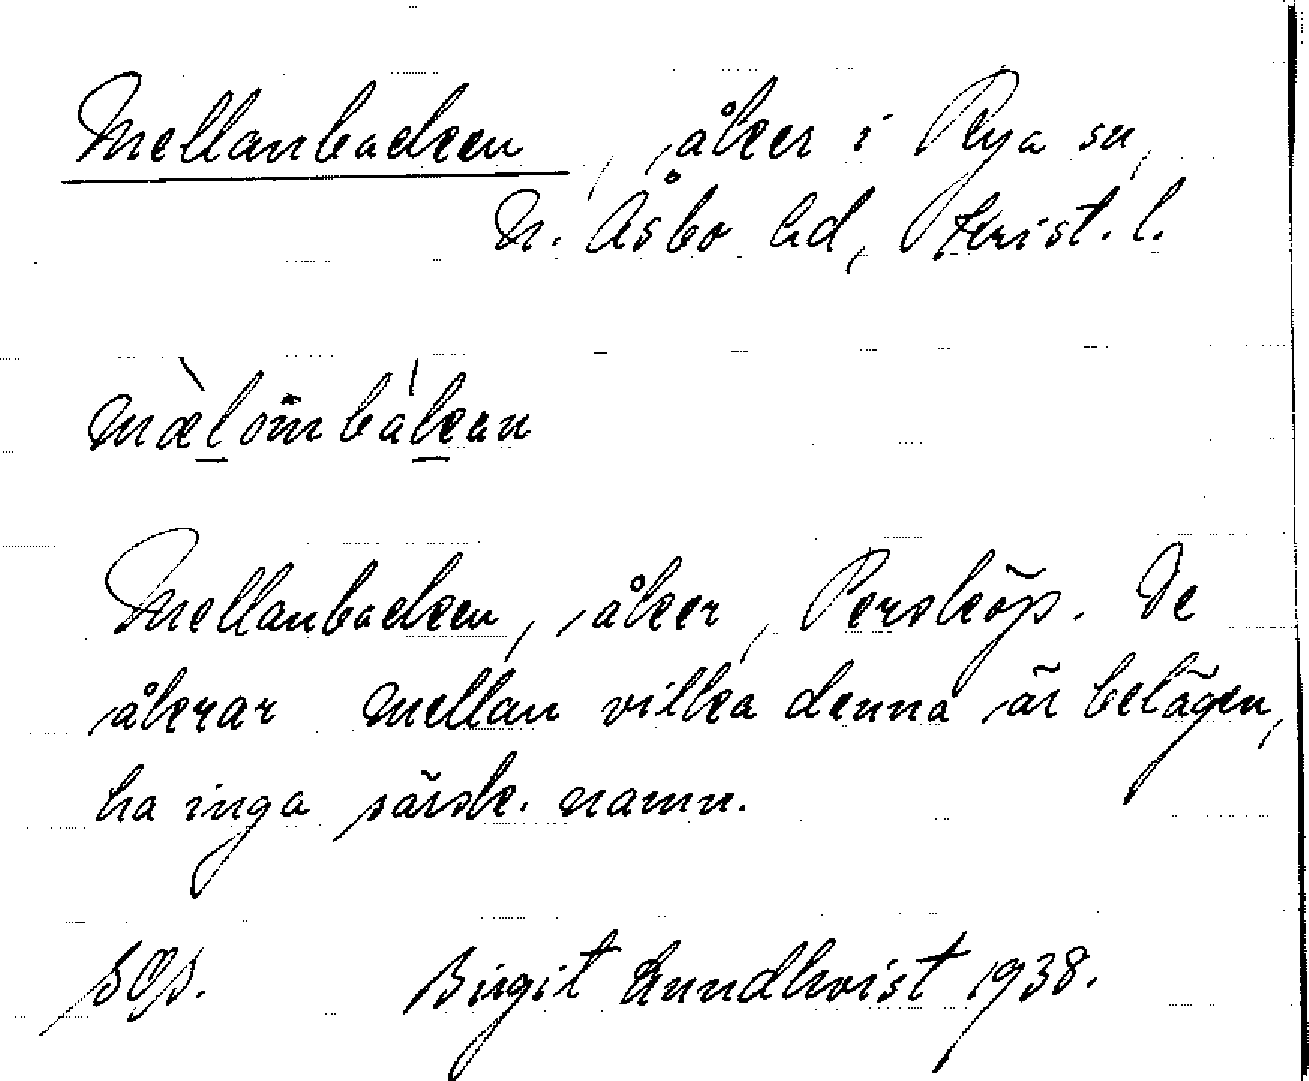 Mellanbacken, åker i Rya sn,
N. Åsbo hd, Krist. l.
mælömbakan
Mellanbacken, åker, Perstorp. De
åkrar mellan vilka denna är belägen,
ha inga särsk. namn.
Birgit Lundkvist 1938.